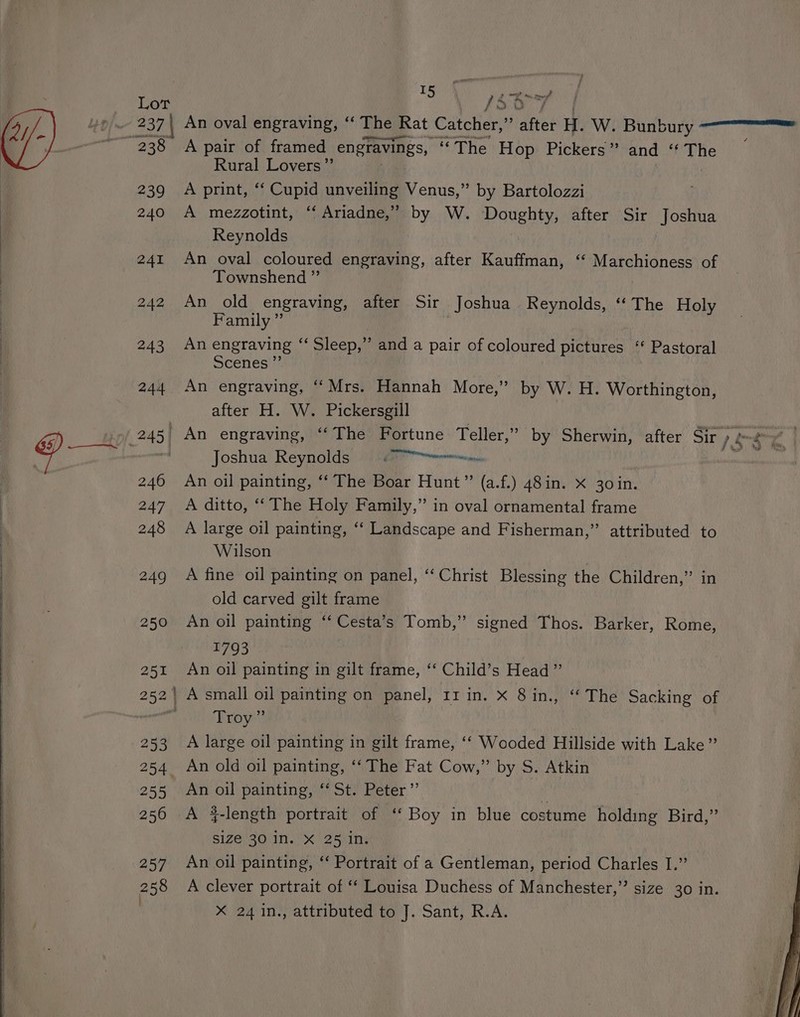 15
1887
Lot
21/-
237 An oval engraving, “The Rat Catcher,” after H. W. Bunbury
238 A pair of framed engravings, “The Hop Pickers” and “The
Rural Lovers”
239 A print, “Cupid unveiling Venus,” by Bartolozzi
240 A mezzotint, “Ariadne,” by W. Doughty, after Sir Joshua
Reynolds
241 An oval coloured engraving, after Kauffman, “Marchioness of
Townshend”
242 An old engraving, after Sir Joshua Reynolds, “The Holy
Family”
243 An engraving “Sleep,” and a pair of coloured pictures “Pastoral
Scenes”
244 An engraving, “Mrs. Hannah More,” by W. H. Worthington,
after H. W. Pickersgill
245 An engraving, “The Fortune Teller,” by Sherwin, after Sir
Joshua Reynolds
246 An oil painting, “The Boar Hunt” (a.f.) 48in. × 30in.
247 A ditto, “The Holy Family,” in oval ornamental frame
248 A large oil painting, “Landscape and Fisherman,” attributed to
Wilson
249 A fine oil painting on panel, “Christ Blessing the Children,” in
old carved gilt frame
250 An oil painting “Cesta’s Tomb,” signed Thos. Barker, Rome,
1793
251 An oil painting in gilt frame, “Child’s Head”
252 A small oil painting on panel, 11 in. × 8 in., “The Sacking of
Troy”
253 A large oil painting in gilt frame, “Wooded Hillside with Lake”
254 An old oil painting, “The Fat Cow,” by S. Atkin
255 An oil painting, “St. Peter”
256 A ¾-length portrait of “Boy in blue costume holding Bird,”
size 30 in. × 25 in.
257 An oil painting, “Portrait of a Gentleman, period Charles I.”
258 A clever portrait of “Louisa Duchess of Manchester,” size 30 in.
× 24 in., attributed to J. Sant, R.A.